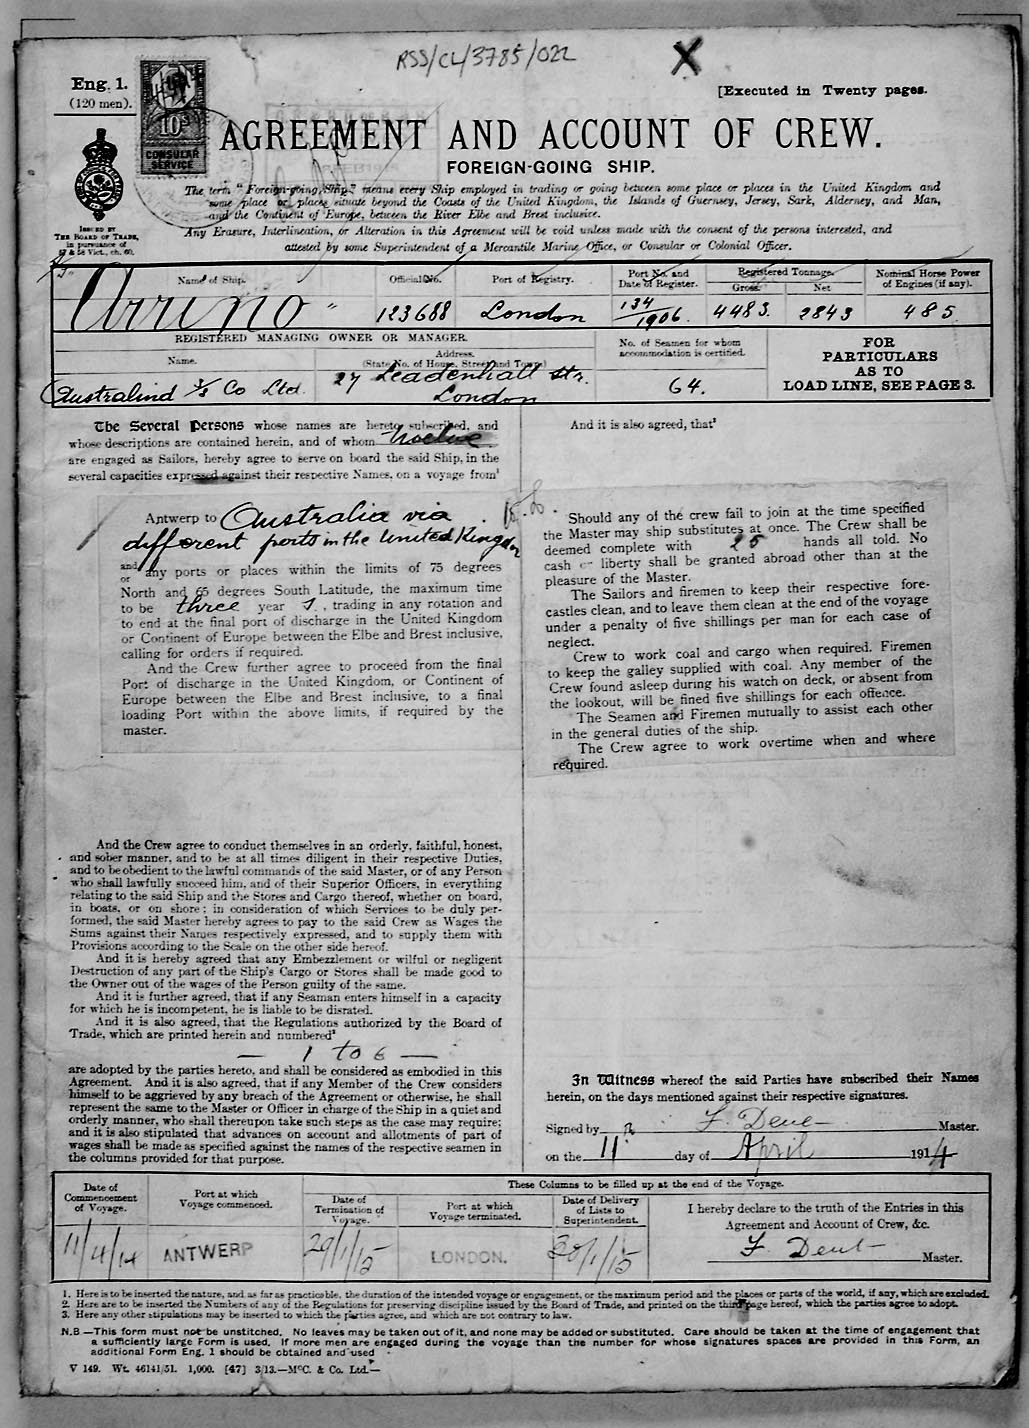 RSS/CL/3785/022
X
Eng. 1.
(120 men).
[Executed in Twenty pages.
10s
CONSULAR
SERVICE
AGREEMENT AND ACCOUNT OF CREW.
FOREIGN-GOING SHIP.
ISSUED BY
THE BOARD OF TRADE,
in pursuance of
57 & 58 Vict., ch. 60.
The term "Foreign-going Ship" means every Ship employed in trading or going between some place or places in the United Kingdom and
some place or places situate beyond the Coasts of the United Kingdom, the Islands of Guernsey, Jersey, Sark, Alderney, and Man,
and the Continent of Europe, between the River Elbe and Brest inclusive.
Any Erasure, Interlineation, or Alteration in this Agreement will be void unless made with the consent of the persons interested, and
attested by some Superintendent of a Mercantile Marine Office, or Consular or Colonial Officer.
Name of Ship. Official No. Port of Registry. Port No. and Date of Register. Registered Tonnage. Gross. Net Nominal Horse Power of Engines (if any).
"Arrino" 123688 London 134/1906. 4483. 2843 485
REGISTERED MANAGING OWNER OR MANAGER.
Name. Address. (State No. of House, Street and Town)
No. of Seamen for whom accommodation is certified.
FOR
PARTICULARS
AS TO
LOAD LINE, SEE PAGE 3.
Australind S/S Co Ltd. 27 Leadenhall Str. London 64.
The Several Persons whose names are hereto subscribed, and
whose descriptions are contained herein, and of whom twelve
are engaged as Sailors, hereby agree to serve on board the said Ship, in the
several capacities expressed against their respective Names, on a voyage from¹
Antwerp to Australia via
different ports in the United Kingdom
and/or any ports or places within the limits of 75 degrees
North and 65 degrees South Latitude, the maximum time
to be three year s, trading in any rotation and
to end at the final port of discharge in the United Kingdom
or Continent of Europe between the Elbe and Brest inclusive,
calling for orders if required.
And the Crew further agree to proceed from the final
Port of discharge in the United Kingdom, or Continent of
Europe between the Elbe and Brest inclusive, to a final
loading Port within the above limits, if required by the
master.
And the Crew agree to conduct themselves in an orderly, faithful, honest,
and sober manner, and to be at all times diligent in their respective Duties,
and to be obedient to the lawful commands of the said Master, or of any Person
who shall lawfully succeed him, and of their Superior Officers, in everything
relating to the said Ship and the Stores and Cargo thereof, whether on board,
in boats, or on shore; in consideration of which Services to be duly per-
formed, the said Master hereby agrees to pay to the said Crew as Wages the
Sums against their Names respectively expressed, and to supply them with
Provisions according to the Scale on the other side hereof.
And it is hereby agreed that any Embezzlement or wilful or negligent
Destruction of any part of the Ship's Cargo or Stores shall be made good to
the Owner out of the wages of the Person guilty of the same.
And it is further agreed, that if any Seaman enters himself in a capacity
for which he is incompetent, he is liable to be disrated.
And it is also agreed, that the Regulations authorized by the Board of
Trade, which are printed herein and numbered²
— 1 to 6 —
are adopted by the parties hereto, and shall be considered as embodied in this
Agreement. And it is also agreed, that if any Member of the Crew considers
himself to be aggrieved by any breach of the Agreement or otherwise, he shall
represent the same to the Master or Officer in charge of the Ship in a quiet and
orderly manner, who shall thereupon take such steps as the case may require;
and it is also stipulated that advances on account and allotments of part of
wages shall be made as specified against the names of the respective seamen in
the columns provided for that purpose.
And it is also agreed, that³
Should any of the crew fail to join at the time specified
the Master may ship substitutes at once. The Crew shall be
deemed complete with 25 hands all told. No
cash or liberty shall be granted abroad other than at the
pleasure of the Master.
The Sailors and firemen to keep their respective fore-
castles clean, and to leave them clean at the end of the voyage
under a penalty of five shillings per man for each case of
neglect.
Crew to work coal and cargo when required. Firemen
to keep the galley supplied with coal. Any member of the
Crew found asleep during his watch on deck, or absent from
the lookout, will be fined five shillings for each offence.
The Seamen and Firemen mutually to assist each other
in the general duties of the ship.
The Crew agree to work overtime when and where
required.
In Witness whereof the said Parties have subscribed their Names
herein, on the days mentioned against their respective signatures.
Signed by F. Dent Master.
on the 11 day of April 1914
Date of Commencement of Voyage. Port at which Voyage commenced. These Columns to be filled up at the end of the Voyage.
Date of Termination of Voyage. Port at which Voyage terminated. Date of Delivery of Lists to Superintendent.
I hereby declare to the truth of the Entries in this
Agreement and Account of Crew, &c.
11/4/14 ANTWERP 29/1/15 LONDON. 30/1/15 F. Dent Master.
1. Here is to be inserted the nature, and as far as practicable, the duration of the intended voyage or engagement, or the maximum period and the places or parts of the world, if any, which are excluded.
2. Here are to be inserted the Numbers of any of the Regulations for preserving discipline issued by the Board of Trade, and printed on the third page hereof, which the parties agree to adopt.
3. Here any other stipulations may be inserted to which the parties agree, and which are not contrary to law.
N.B.—This form must not be unstitched. No leaves may be taken out of it, and none may be added or substituted. Care should be taken at the time of engagement that
a sufficiently large Form is used. If more men are engaged during the voyage than the number for whose signatures spaces are provided in this Form, an
additional Form Eng. 1 should be obtained and used
V 149. Wt. 46141/51. 1,000. [47] 3/13.—McC. & Co. Ltd.—